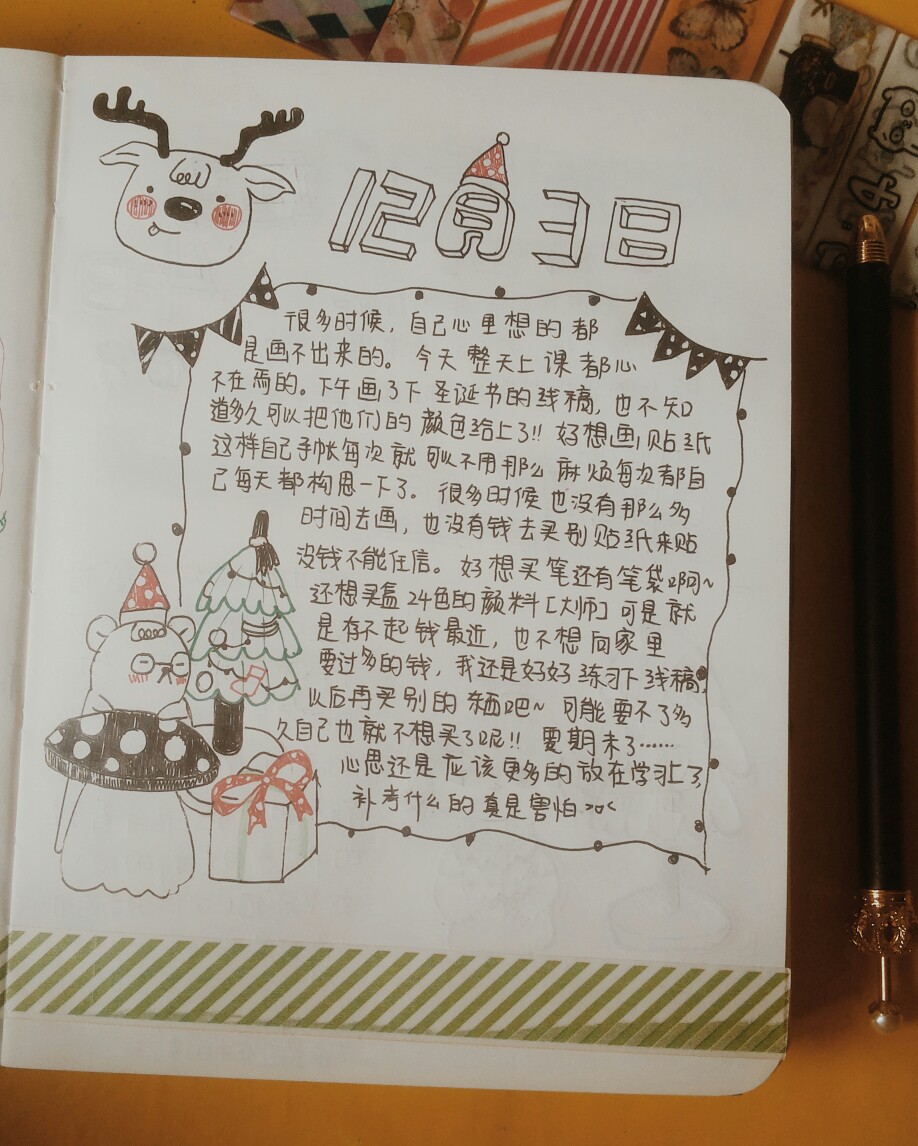 12月3日
很多时候，自己心里想的都
是画不出来的。今天整天上课都心
不在焉的。下午画了下圣诞书的线稿，也不知
道多久可以把他们的颜色给上了!! 好想画贴纸
这样自己手帐每次就可以不用那么麻烦每次都自
己每天都构思一下了。很多时候也没有那么多
时间去画，也没有钱去买别贴纸来贴
没钱不能任信。好想买笔还有笔袋啊~
还想买盒24色的颜料[大师]可是就
是存不起钱最近，也不想向家里
要过多的钱，我还是好好练习下线稿，
以后再买别的东西吧~ 可能要不了多
久自己也就不想买了呢!! 要期末了……
心思还是应该更多的放在学习上了
补考什么的真是害怕>o<